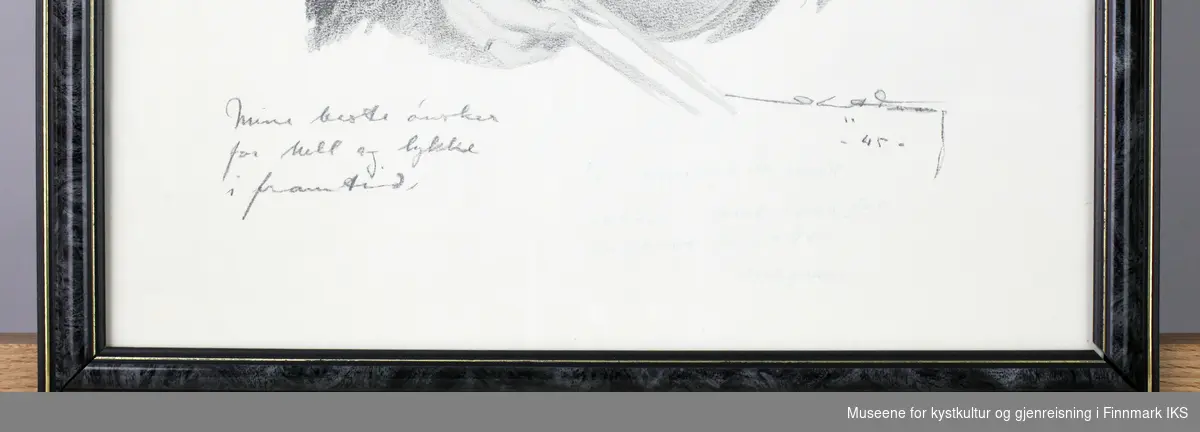 Mine beste ønsker
for hell og lykke
i framtid.
- 45 -
Museene for kystkultur og gjenreisning i Finnmark IKS